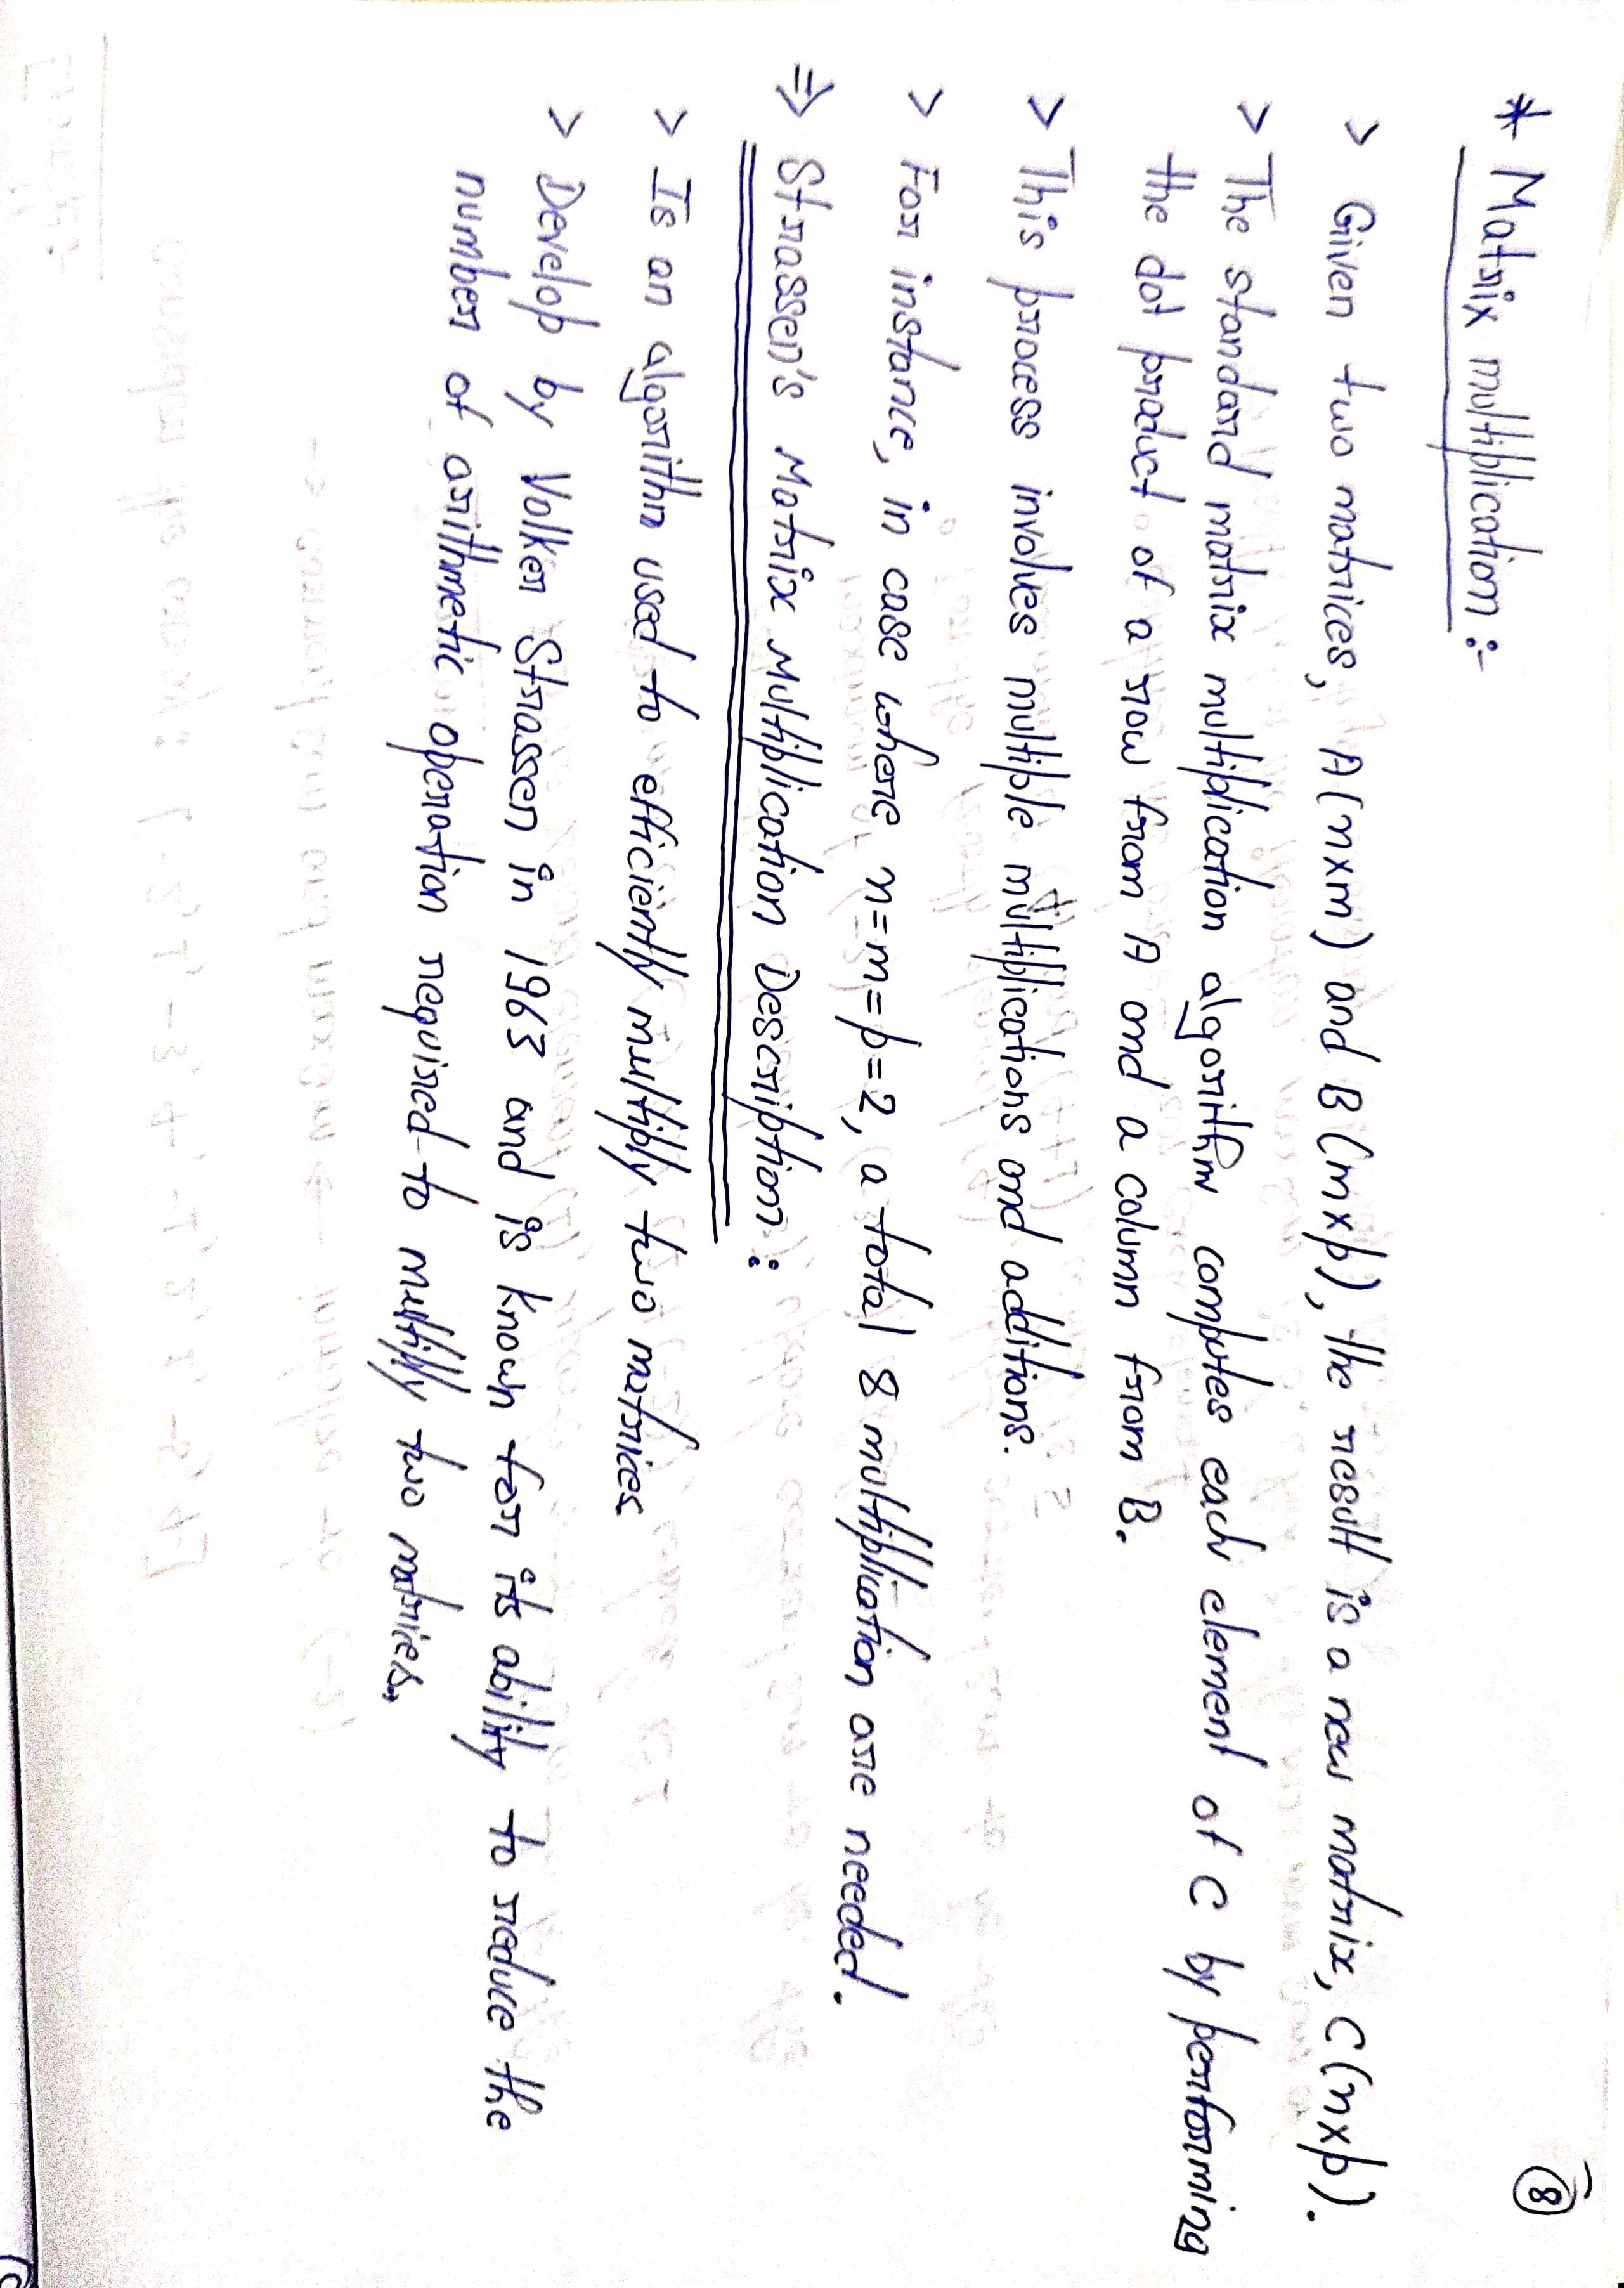 8
* Matrix multiplication :-
> Given two matrices, A(n×m) and B(m×p), the result is a new matrix, C(n×p).
> The standard matrix multiplication algorithm computes each element of C by performing
the dot product of a row from A and a column from B.
> This process involves multiple multiplications and additions.
> For instance, in case where n=m=p=2, a total 8 multiplication are needed.
⇒ Strassen's Matrix Multiplication Description :
> Is an algorithm used to efficiently multiply two matrices
> Develop by Volker Strassen in 1963 and is known for its ability to reduce the
number of arithmetic operation required to multiply two matrices.